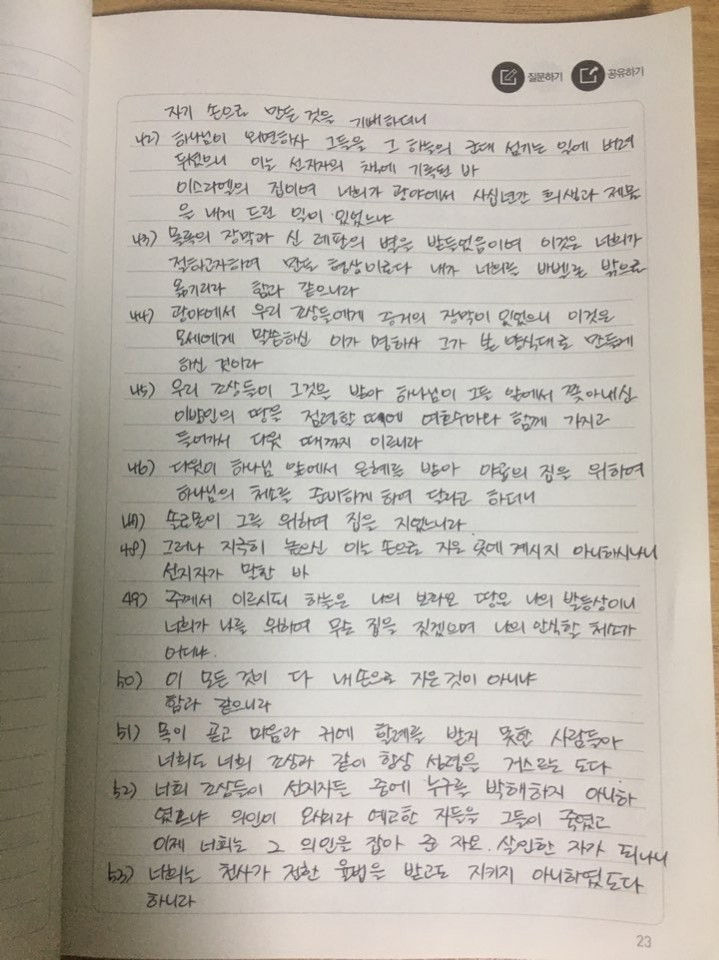 질문하기 공유하기
자기 손으로 만든 것을 기뻐하더니
42) 하나님이 외면하사 그들을 그 하늘의 군대 섬기는 일에 버려
두셨으니 이는 선지자의 책에 기록된 바
이스라엘의 집이여 너희가 광야에서 사십년간 희생과 제물
을 내게 드린 일이 있었느냐
43) 몰록의 장막과 신 레판의 별을 받들었음이여 이것은 너희가
절하고자하여 만든 형상이로다 내가 너희를 바벨론 밖으로
옮기리라 함과 같으니라
44) 광야에서 우리 조상들에게 증거의 장막이 있었으니 이것은
모세에게 말씀하신 이가 명하사 그가 본 양식대로 만들게
하신 것이라
45) 우리 조상들이 그것을 받아 하나님이 그들 앞에서 쫓아내신
이방인의 땅을 점령할 때에 여호수아와 함께 가지고
들어가서 다윗 때까지 이르니라
46) 다윗이 하나님 앞에서 은혜를 받아 야곱의 집을 위하여
하나님의 처소를 준비하게 하여 달라고 하더니
47) 솔로몬이 그를 위하여 집을 지었느니라
48) 그러나 지극히 높으신 이는 손으로 지은 곳에 계시지 아니하시나니
선지자가 말한 바
49) 주께서 이르시되 하늘은 나의 보좌요 땅은 나의 발등상이니
너희가 나를 위하여 무슨 집을 짓겠으며 나의 안식할 처소가
어디냐.
50) 이 모든 것이 다 내 손으로 지은 것이 아니냐
함과 같으니라
51) 목이 곧고 마음과 귀에 할례를 받지 못한 사람들아
너희도 너희 조상과 같이 항상 성령을 거스르는 도다
52) 너희 조상들이 선지자들 중에 누구를 박해하지 아니하
였느냐 의인이 오시리라 예고한 자들을 그들이 죽였고
이제 너희는 그 의인을 잡아 준 자요. 살인한 자가 되나니
53) 너희는 천사가 전한 율법을 받고도 지키지 아니하였도다
하니라
23